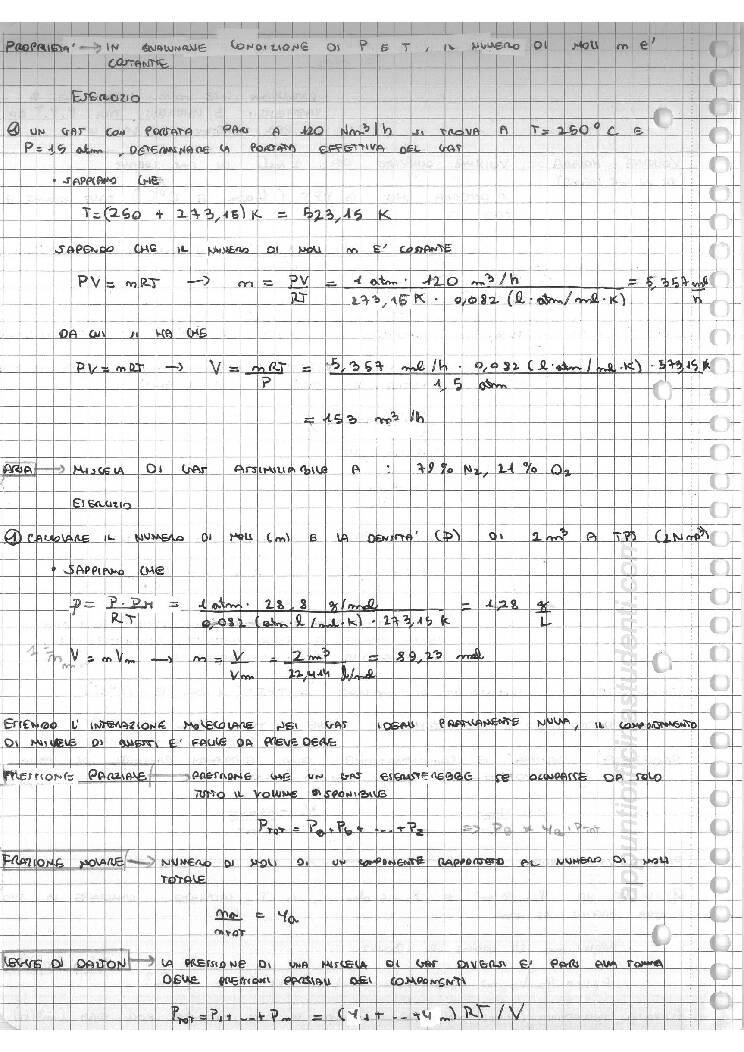 PROPRIETA' → IN QUALUNQUE CONDIZIONE DI P E T, IL NUMERO DI MOLI n E'
COSTANTE
ESERCIZIO
① UN GAS CON PORTATA PARI A 120 Nm³/h SI TROVA A T= 250°C E
P= 1,5 atm, DETERMINARE LA PORTATA EFFETTIVA DEL GAS
• SAPPIAMO CHE
T=(250 + 273,15) K = 523,15 K
SAPENDO CHE IL NUMERO DI MOLI n E' COSTANTE
PV = nRT → n = PV/RT = 1 atm · 120 m³/h / 273,15 K · 0,082 (l · atm/mol · K) = 5,357 mol/h
DA CUI SI HA CHE
PV = nRT → V = nRT/P = 5,357 mol/h · 0,082 (l · atm/mol · K) · 573,15 K / 1,5 atm
= 153 m³/h
ARIA → MISCELA DI GAS ASSIMILIABILE A : 79% N₂, 21% O₂
ESERCIZIO
① CALCOLARE IL NUMERO DI MOLI (n) E LA DENSITA' (ρ) DI 2 m³ A TPS (2Nm³)
• SAPPIAMO CHE
ρ = P · PM / RT = 1 atm · 28,8 g/mol / 0,082 (atm · l/mol · K) · 273,15 K = 1,28 g/L
V = nVm → n = V/Vm = 2 m³ / 22,414 l/mol = 89,23 mol
ESSENDO L'INTERAZIONE MOLECOLARE NEI GAS IDEALI PRATICAMENTE NULLA, IL COMPORTAMENTO
DI MISCELE DI QUESTI E' FACILE DA PREVEDERE
PRESSIONE PARZIALE → PRESSIONE CHE UN GAS ESERCITEREBBE SE OCCUPASSE DA SOLO
TUTTO IL VOLUME DISPONIBILE
Pᴛᴏᴛ = Pa + Pb + ... + Pz ⇒ Pa = ya · Pᴛᴏᴛ
FRAZIONE MOLARE → NUMERO DI MOLI DI UN COMPONENTE RAPPORTATO AL NUMERO DI MOLI
TOTALE
na/nᴛᴏᴛ = ya
LEGGE DI DALTON → LA PRESSIONE DI UNA MISCELA DI GAS DIVERSI E' PARI ALLA SOMMA
DELLE PRESSIONI PARZIALI DEI COMPONENTI
Pᴛᴏᴛ = P₁ + ... + Pn = (y₁ + ... + yn) RT/V